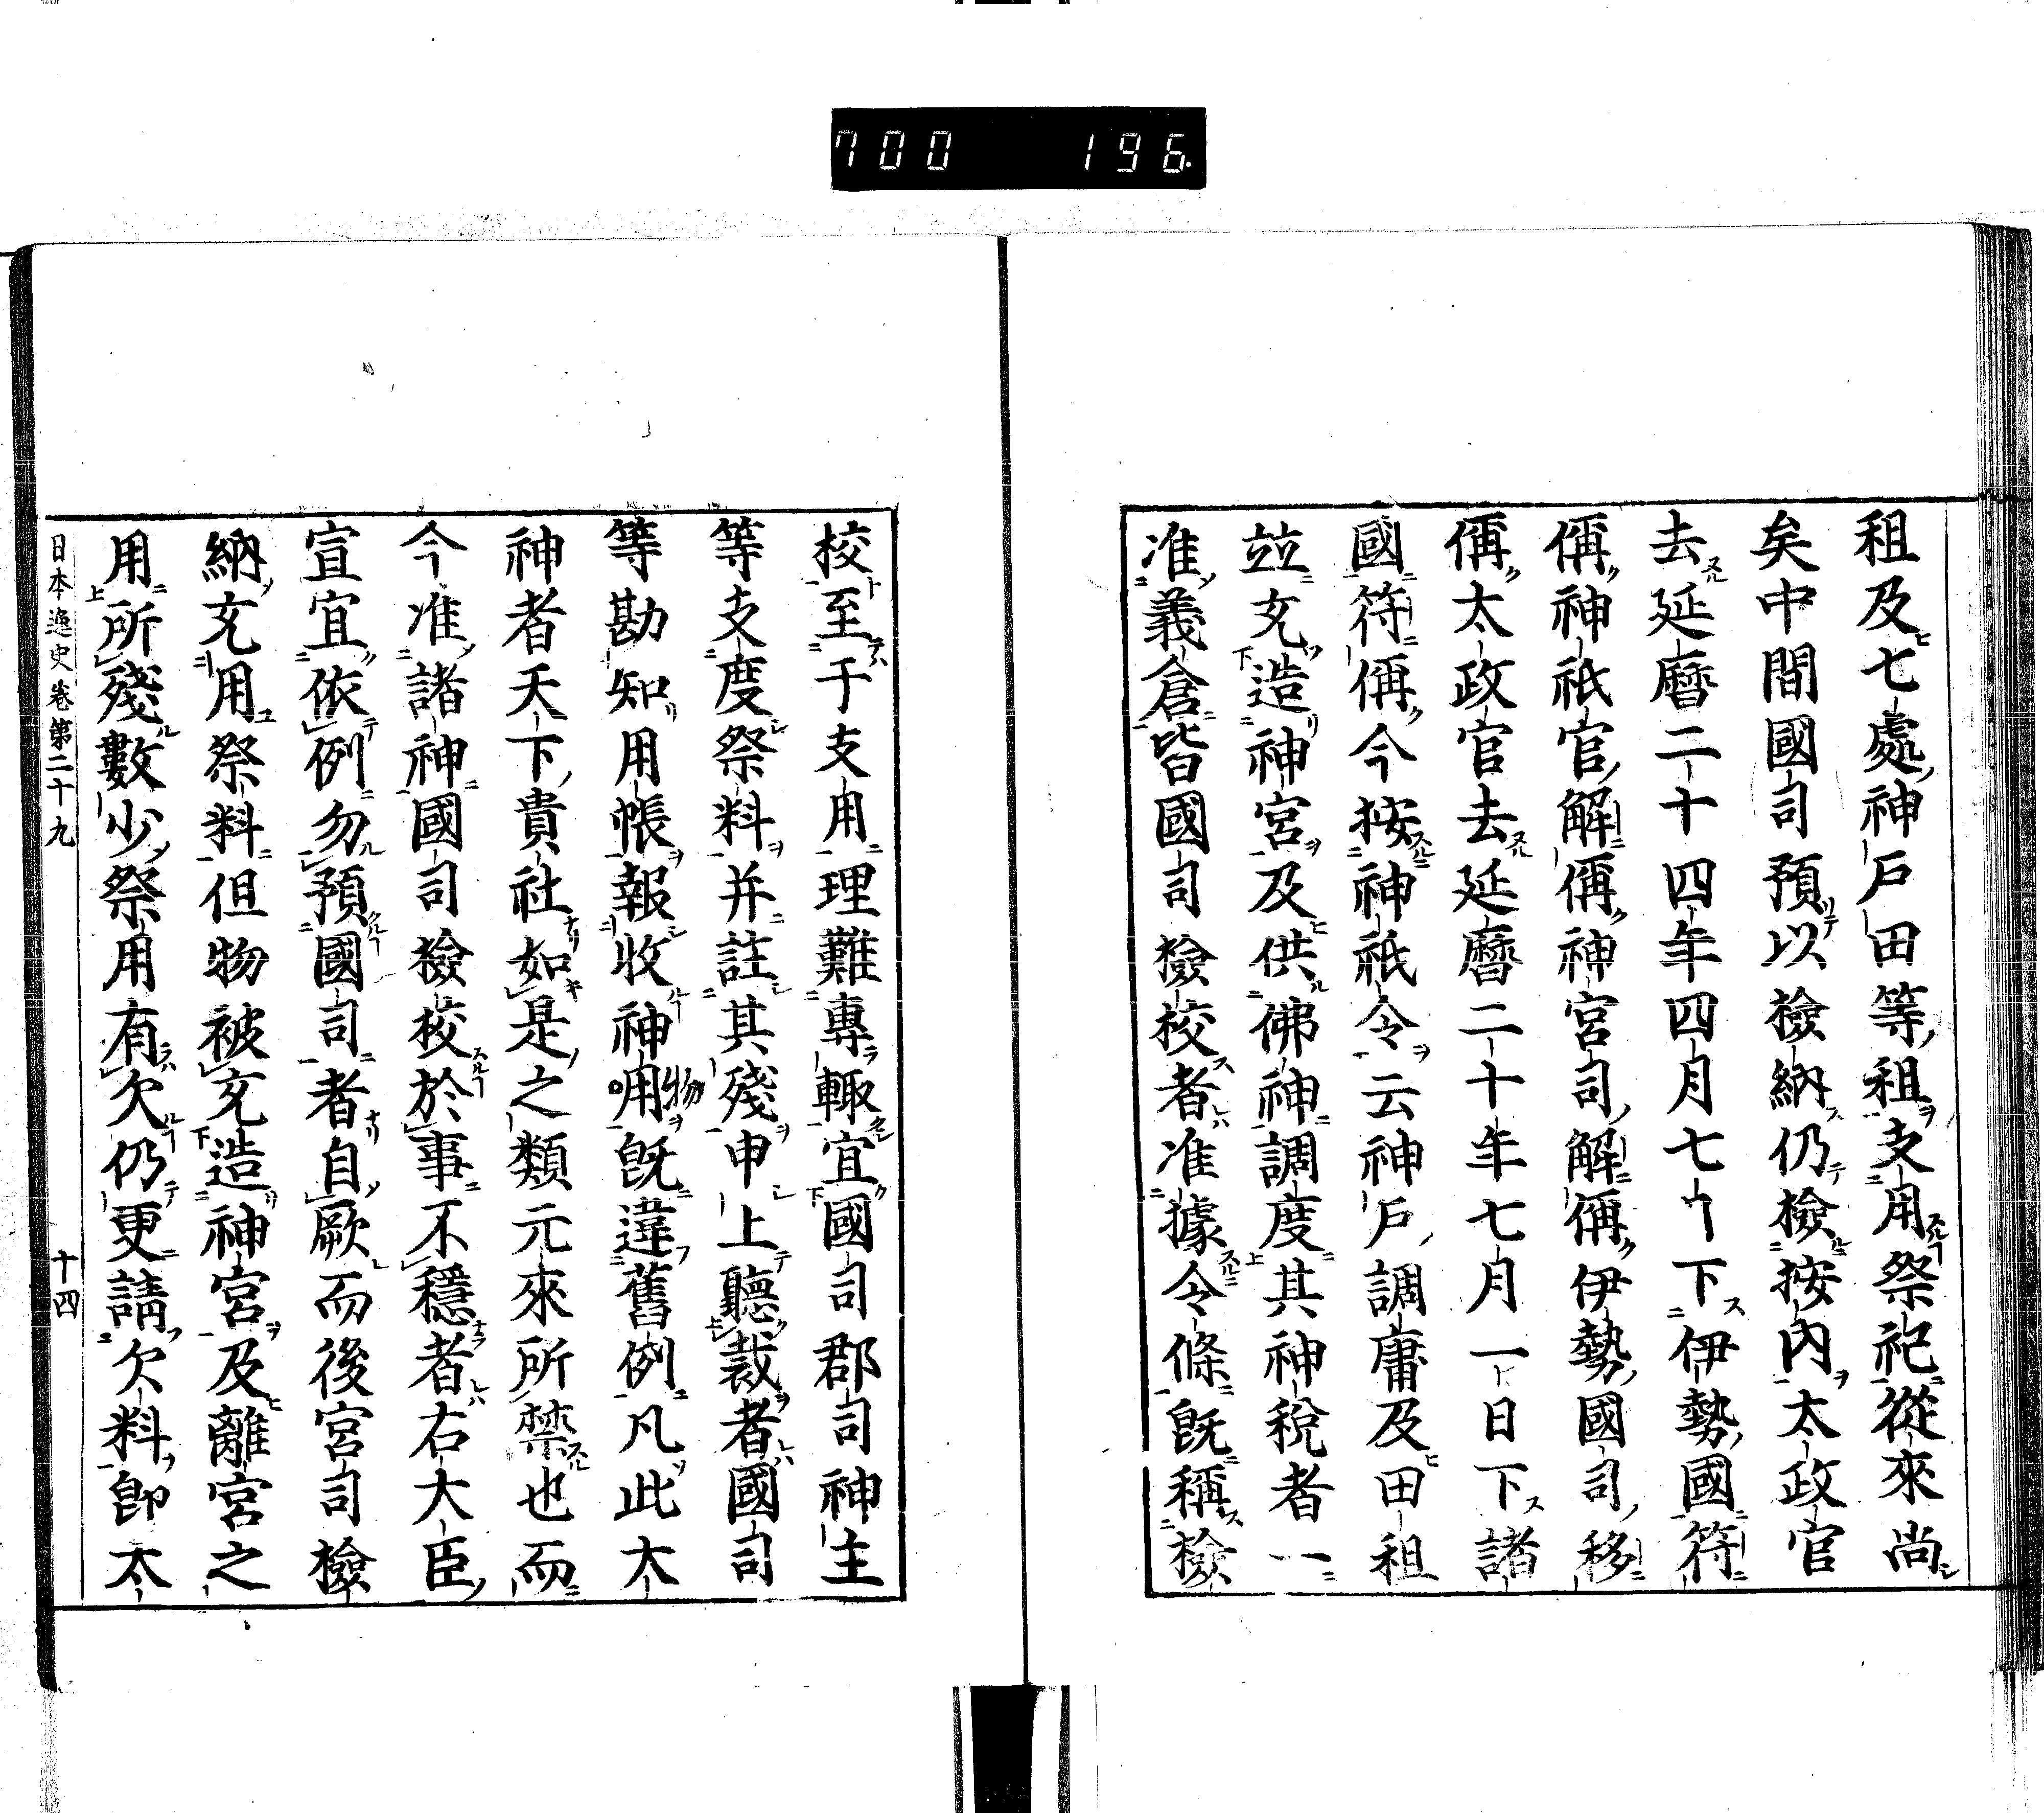 700 196
租及七處神戶田等租支用祭祀從來尚
矣中間國司預以檢納仍檢按內太政官
去延曆二十四年四月七日下伊勢國符
偁神祇官解偁神宮司解偁伊勢國司移
偁太政官去延曆二十年七月一日下諸
國符偁今按神祇令云神戶調庸及田租
竝充造神宮及供佛神調度其神稅者一
准義倉皆國司檢校者准據令條旣稱檢
校至于支用理難專輙宜國司郡司神主
等支度祭料并註其殘申上聽裁者國司
等勘知用帳報收神物用旣違舊例凡此大
神者天下貴社如是之類元來所禁也而
今准諸神國司檢校於事不穩者右大臣
宣宜依例勿預國司者自厥而後宮司檢
納充用祭料但物被充造神宮及離宮之
用所殘數少祭用有欠仍更請欠料卽太
日本逸史卷第二十九 十四